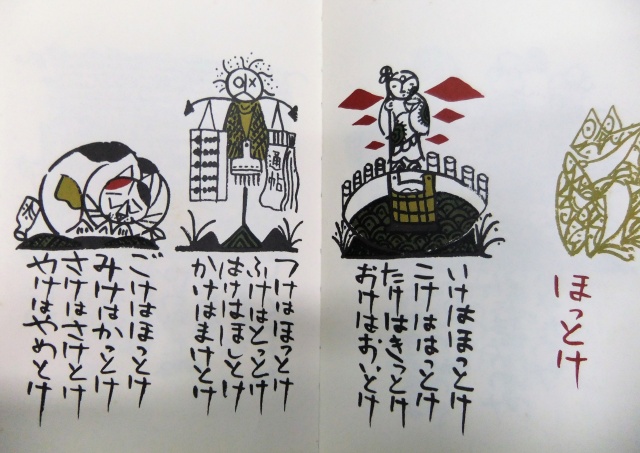 ほっとけ
いけはほっとけ
こけははっとけ
たけはきっとけ
おけはおいとけ
つけはほっとけ
ふけはとっとけ
はけはほしとけ
かけはまけとけ
通帖
ごけはほっとけ
みけはかっとけ
さけはさけとけ
やけはやめとけ